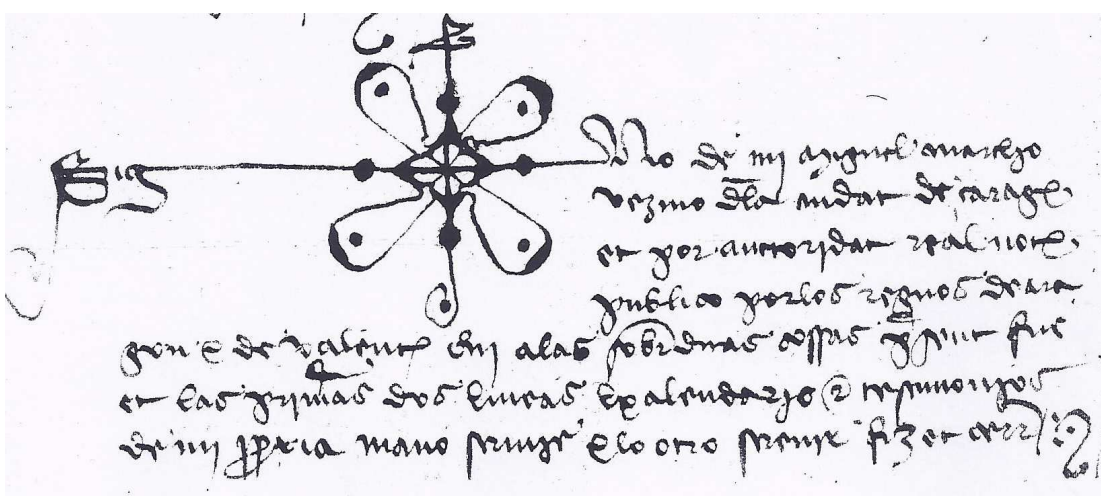 Sig no de mi Miguel Navarro
vezino dela ciudat de Çarag.
et por auctoridat real not.
publico por los regnos de Ara
gon et de Valent. qui a las sobreditas cossas present fue
et las primeras dos lineas kalendario et testimonios
de mi propria mano scriuie et lo otro screuir fiz et cerr.